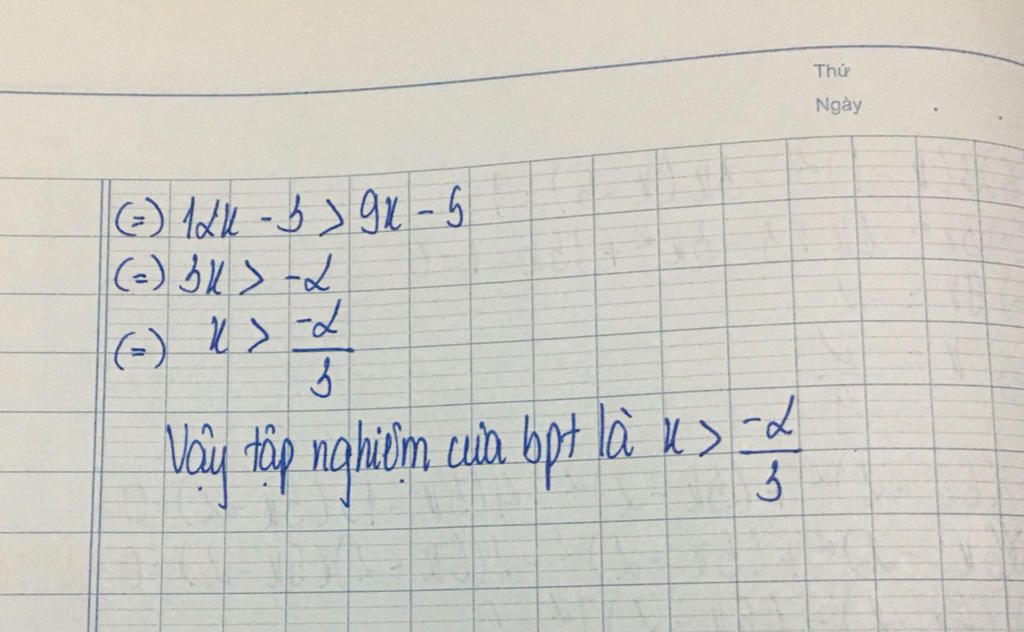 Thứ
Ngày
(=) 12x - 3 > 9x - 5
(=) 3x > -2
(=) x > -2/3
Vậy tập nghiệm của bpt là x > -2/3